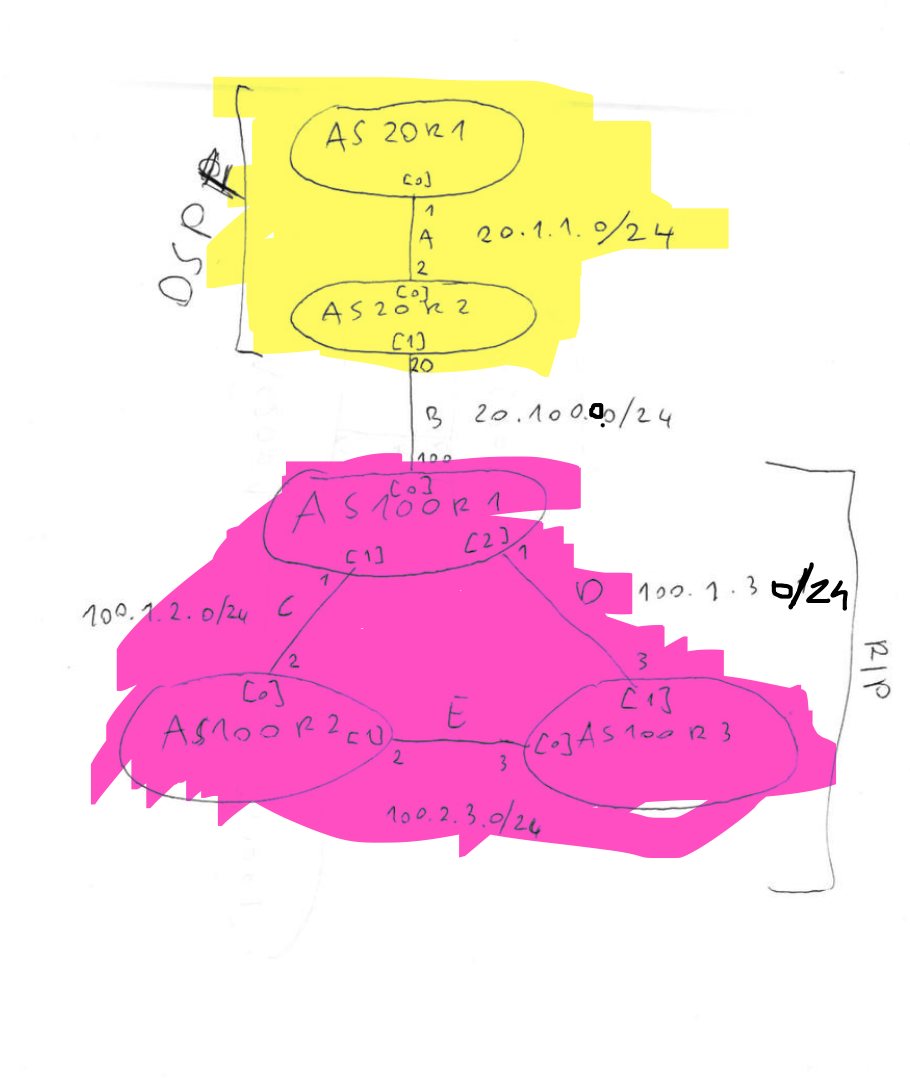 AS 20R1
[0]
1
A
20.1.1.0/24
OSPF
2
[0]
AS20R2
[1]
20
B
20.100.0.0/24
100
[0]
AS100R1
[1]
[2]
1
1
100.1.2.0/24
C
D
100.1.3 0/24
RIP
2
3
[0]
[1]
AS100R2
[1]
E
[0]
AS100R3
2
3
100.2.3.0/24